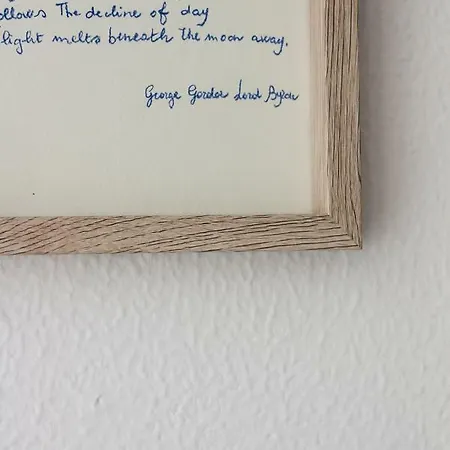 ollows The decline of day
light melts beneath the moon away.
George Gordon Lord Byron